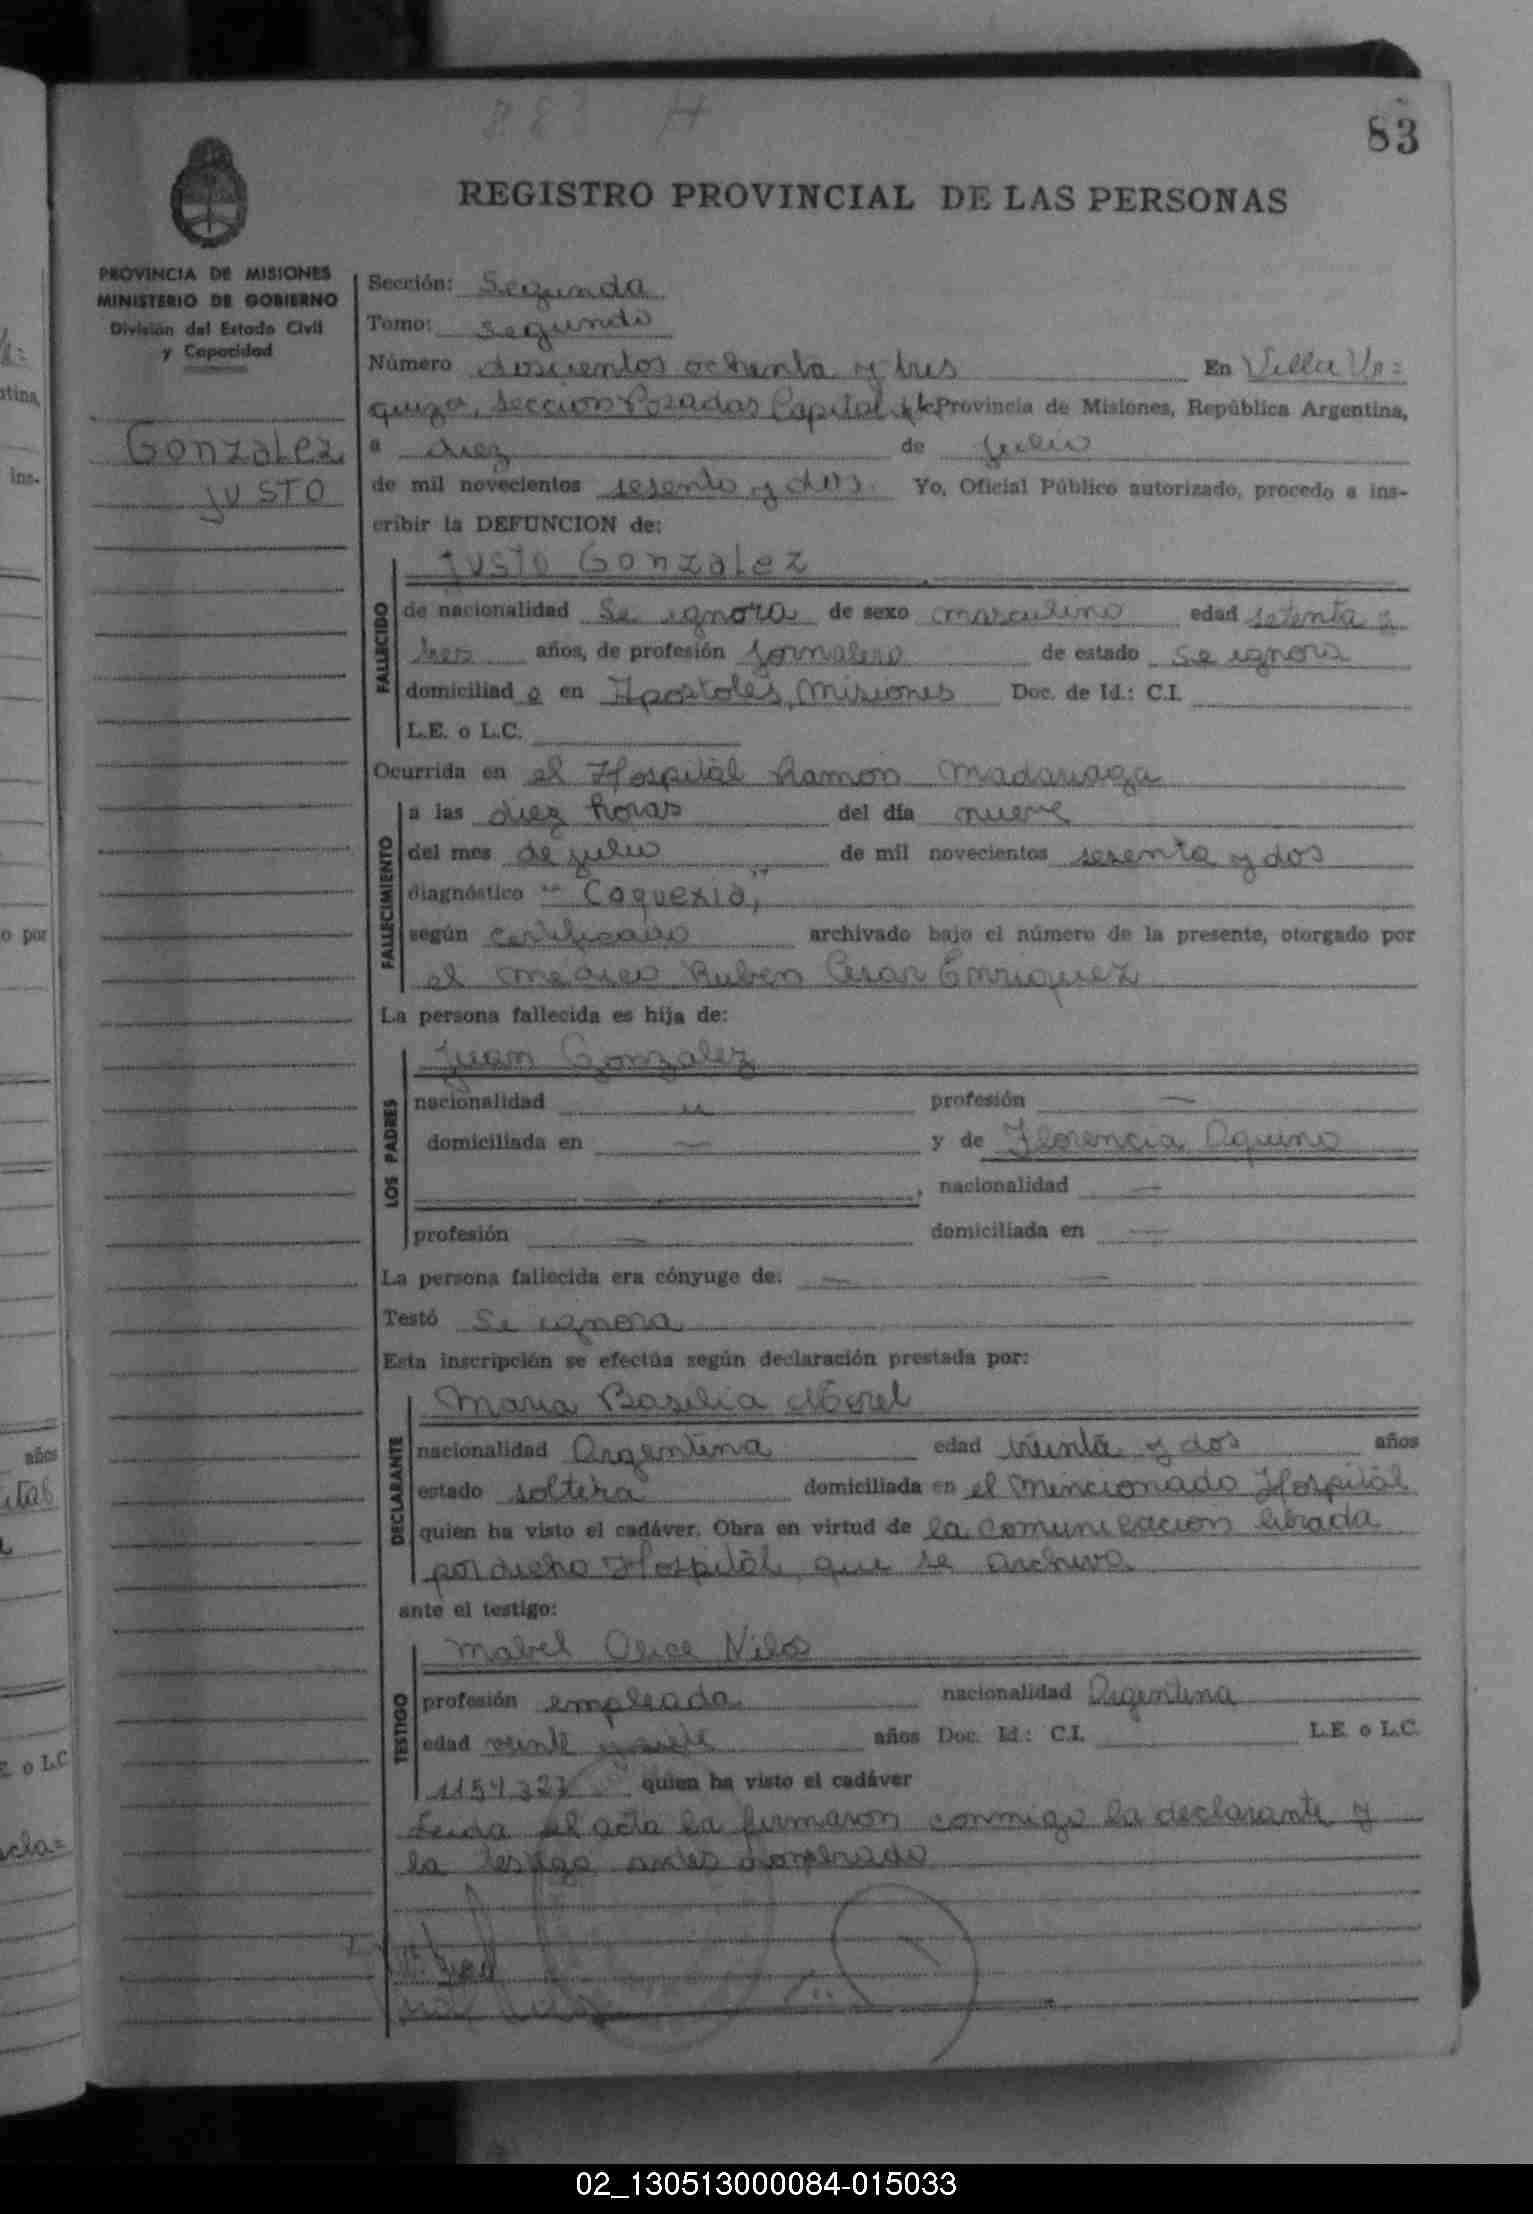 283 H
83
REGISTRO PROVINCIAL DE LAS PERSONAS
PROVINCIA DE MISIONES
MINISTERIO DE GOBIERNO
División del Estado Civil
y Capacidad
Gonzalez
Justo
Sección: Segunda
Tomo: segundo
Número doscientos ochenta y tres En Villa Ur=
quiza, seccion Posadas Capital de la Provincia de Misiones, República Argentina,
a diez de julio
de mil novecientos sesenta y dos. Yo, Oficial Público autorizado, procedo a ins-
cribir la DEFUNCION de:
Justo Gonzalez
FALLECIDO
de nacionalidad Se ignora de sexo masculino edad setenta y
tres años, de profesión Jornalero de estado se ignora
domiciliad o en Apostoles, Misiones Doc. de Id.: C.I.
L.E. o L.C.
Ocurrida en el Hospital Ramon Madariaga
FALLECIMIENTO
a las diez horas del día nueve
del mes de julio de mil novecientos sesenta y dos
diagnóstico "Caquexia"
según certificado archivado bajo el número de la presente, otorgado por
el medico Ruben Cesar Enriquez
La persona fallecida es hija de:
LOS PADRES
Juan Gonzalez
nacionalidad — profesión —
domiciliada en — y de Florencia Aquino
, nacionalidad —
profesión — domiciliada en —
La persona fallecida era cónyuge de: — —
Testó Se ignora
Esta inscripción se efectúa según declaración prestada por:
DECLARANTE
Maria Basilia Morel
nacionalidad Argentina edad treinta y dos años
estado soltera domiciliada en el mencionado Hospital
quien ha visto el cadáver. Obra en virtud de la comunicacion librada
por dicho Hospital, que se archiva
ante el testigo:
TESTIGO
Mabel Alice
profesión empleada nacionalidad Argentina
edad veinte y siete años Doc. Id.: C.I. L.E. o L.C.
1154327 quien ha visto el cadáver
Leida el acta la firmaron conmigo la declarante y
la testigo antes nombrado
02_130513000084-015033